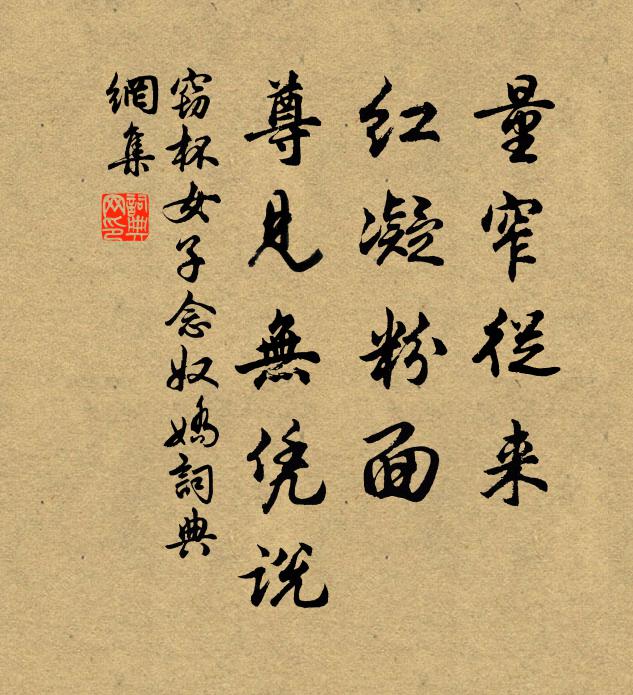 量窄從来
红凝粉面
尊見無凭説
窃杯女子念奴嬌詞典
網集
詞典
网印